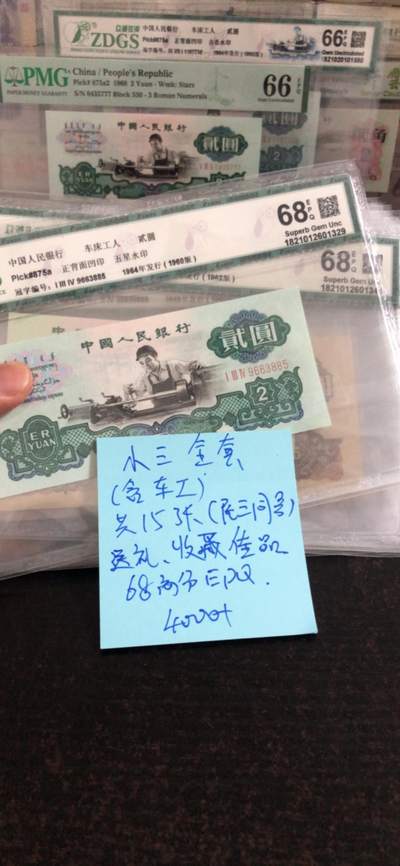 ZDGS
中国人民银行 车床工人 贰圆
66 EPQ
Gem Uncirculated
PMG
PAPER MONEY GUARANTY
China / People's Republic
66 EPQ
中國人民銀行
貳圓
中国人民银行 车床工人 贰圆
Pick#875a 正背面凹印 五星水印
冠字编号: I III IV 9663885 1964年发行(1960版)
68 EPQ
Superb Gem Unc
1821012601329
68
Superb Gem Unc
中國人民銀行
貳圓
I III IV 9663885
ER
YUAN
2
小三全套
(含车工)
共15张(尾三同号)
送礼、收藏佳品
68高分EPQ.
4000+